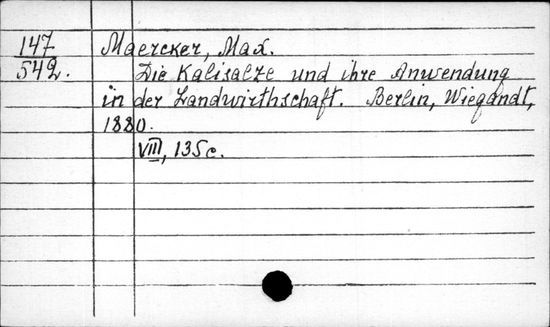 147 Maercker, Max.
542. Die Kalisalze und ihre Anwendung
in der Landwirthschaft. Berlin, Wiegandt,
1880.
VIII, 135 c.